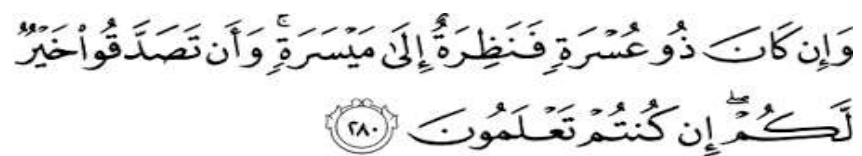 وَإِن كَانَ ذُو عُسْرَةٍ فَنَظِرَةٌ إِلَىٰ مَيْسَرَةٍ ۚ وَأَن تَصَدَّقُوا۟ خَيْرٌ
لَّكُمْ ۖ إِن كُنتُمْ تَعْلَمُونَ ﴿٢٨٠﴾